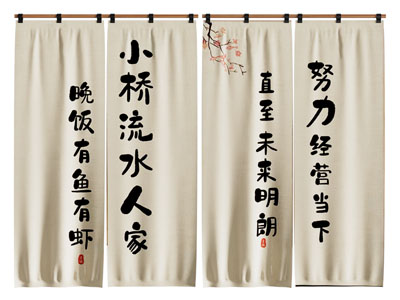 努力经营当下
直至未来明朗
小桥流水人家
晚饭有鱼有虾